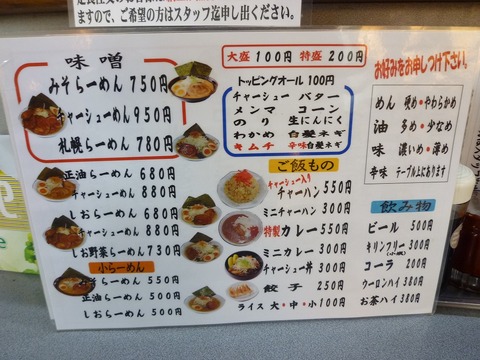 ますので、ご希望の方はスタッフ迄申し出ください。
味噌
みそらーめん 750円
チャーシューめん 950円
札幌らーめん 780円
正油らーめん 680円
チャーシューめん 880円
しおらーめん 680円
チャーシューめん 880円
しお野菜らーめん 730円
小らーめん
みそらーめん 550円
正油らーめん 500円
しおらーめん 500円
大盛100円 特盛200円
トッピングオール100円
チャーシュー バター
メンマ コーン
のり 生にんにく
わかめ 白髪ネギ
キムチ 辛味白髪ネギ
ご飯もの
チャーシュー入り
チャーハン 550円
ミニチャーハン 300円
特製カレー 550円
ミニカレー 300円
チャーシュー丼 300円
餃子 250円
ライス 大・中・小 100円
お好みをお申しつけ下さい。
めん 硬め・やわらかめ
油 多め・少なめ
味 濃いめ・薄め
辛味 テーブル上にあります
飲み物
ビール 500円
キリンフリー 300円
コーラ 200円
ウーロンハイ 380円
お茶ハイ 380円